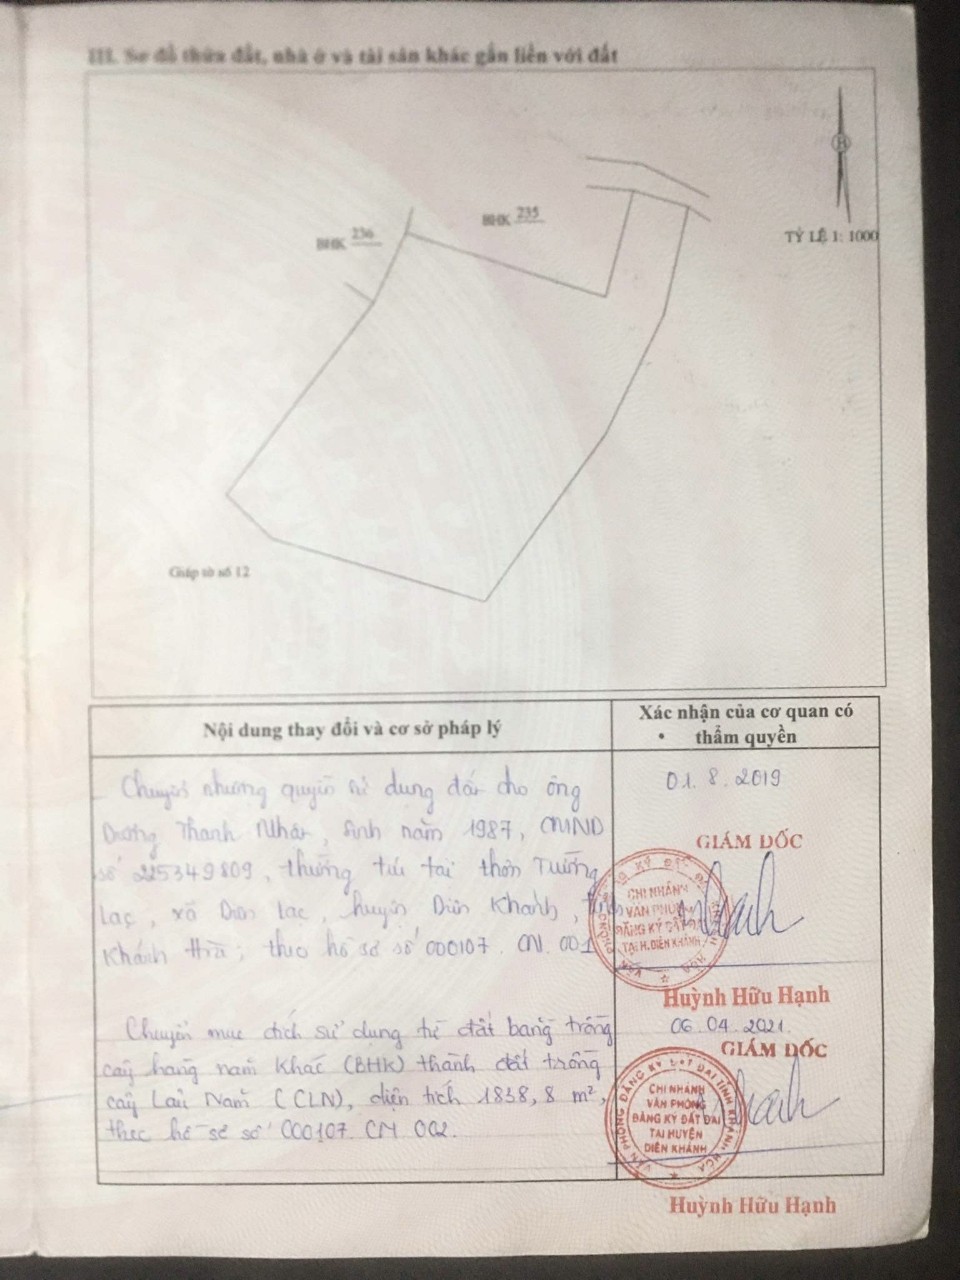 III. Sơ đồ thửa đất, nhà ở và tài sản khác gắn liền với đất
TỶ LỆ 1: 1000
BHK 235
BHK 236
Giáp tờ số 12
Nội dung thay đổi và cơ sở pháp lý
Xác nhận của cơ quan có
thẩm quyền
Chuyển nhượng quyền sử dụng đất cho ông
Dương Thanh Nhân, sinh năm 1987, CMND
số 225349809, thường trú tại thôn Trường
Lạc, xã Diên Lạc, huyện Diên Khánh, tỉnh
Khánh Hòa; theo hồ sơ số 000107. CN. 001
01. 8. 2019
GIÁM ĐỐC
CHI NHÁNH
VĂN PHÒNG
ĐĂNG KÝ ĐẤT ĐAI
TẠI H. DIÊN KHÁNH
Huỳnh Hữu Hạnh
Chuyển mục đích sử dụng từ đất bằng trồng
cây hàng năm khác (BHK) thành đất trồng
cây Lâu Năm (CLN), diện tích 1838,8 m²,
theo hồ sơ số 000107. CM. 002.
06. 04. 2021.
GIÁM ĐỐC
VĂN PHÒNG ĐĂNG KÝ ĐẤT ĐAI TỈNH KHÁNH HÒA
CHI NHÁNH
VĂN PHÒNG
ĐĂNG KÝ ĐẤT ĐAI
TẠI HUYỆN
DIÊN KHÁNH
Huỳnh Hữu Hạnh